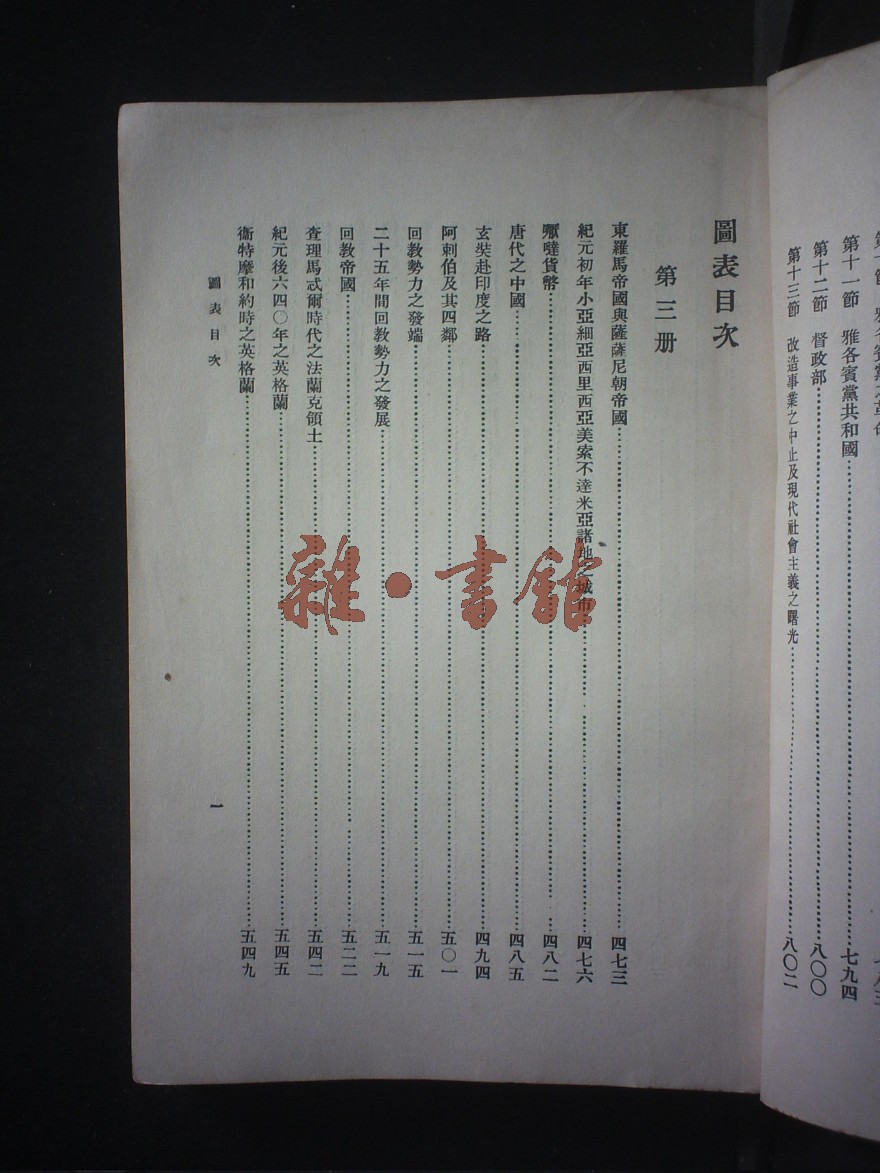 第十一節　雅各賓黨共和國……七九四
第十二節　督政部……八〇〇
第十三節　改造事業之中止及現代社會主義之曙光……八〇二
圖表目次
第三册
東羅馬帝國與薩薩尼朝帝國……四七三
紀元初年小亞細亞西里西亞美索不達米亞諸地之城市……四七六
嚈噠貨幣……四八二
唐代之中國……四八五
玄奘赴印度之路……四九四
阿剌伯及其四鄰……五〇一
回教勢力之發端……五一五
二十五年間回教勢力之發展……五一九
回教帝國……五二二
查理馬忒爾時代之法蘭克領土……五四二
紀元後六四〇年之英格蘭……五四五
衞特摩和約時之英格蘭……五四九
圖表目次
一
雜·書館